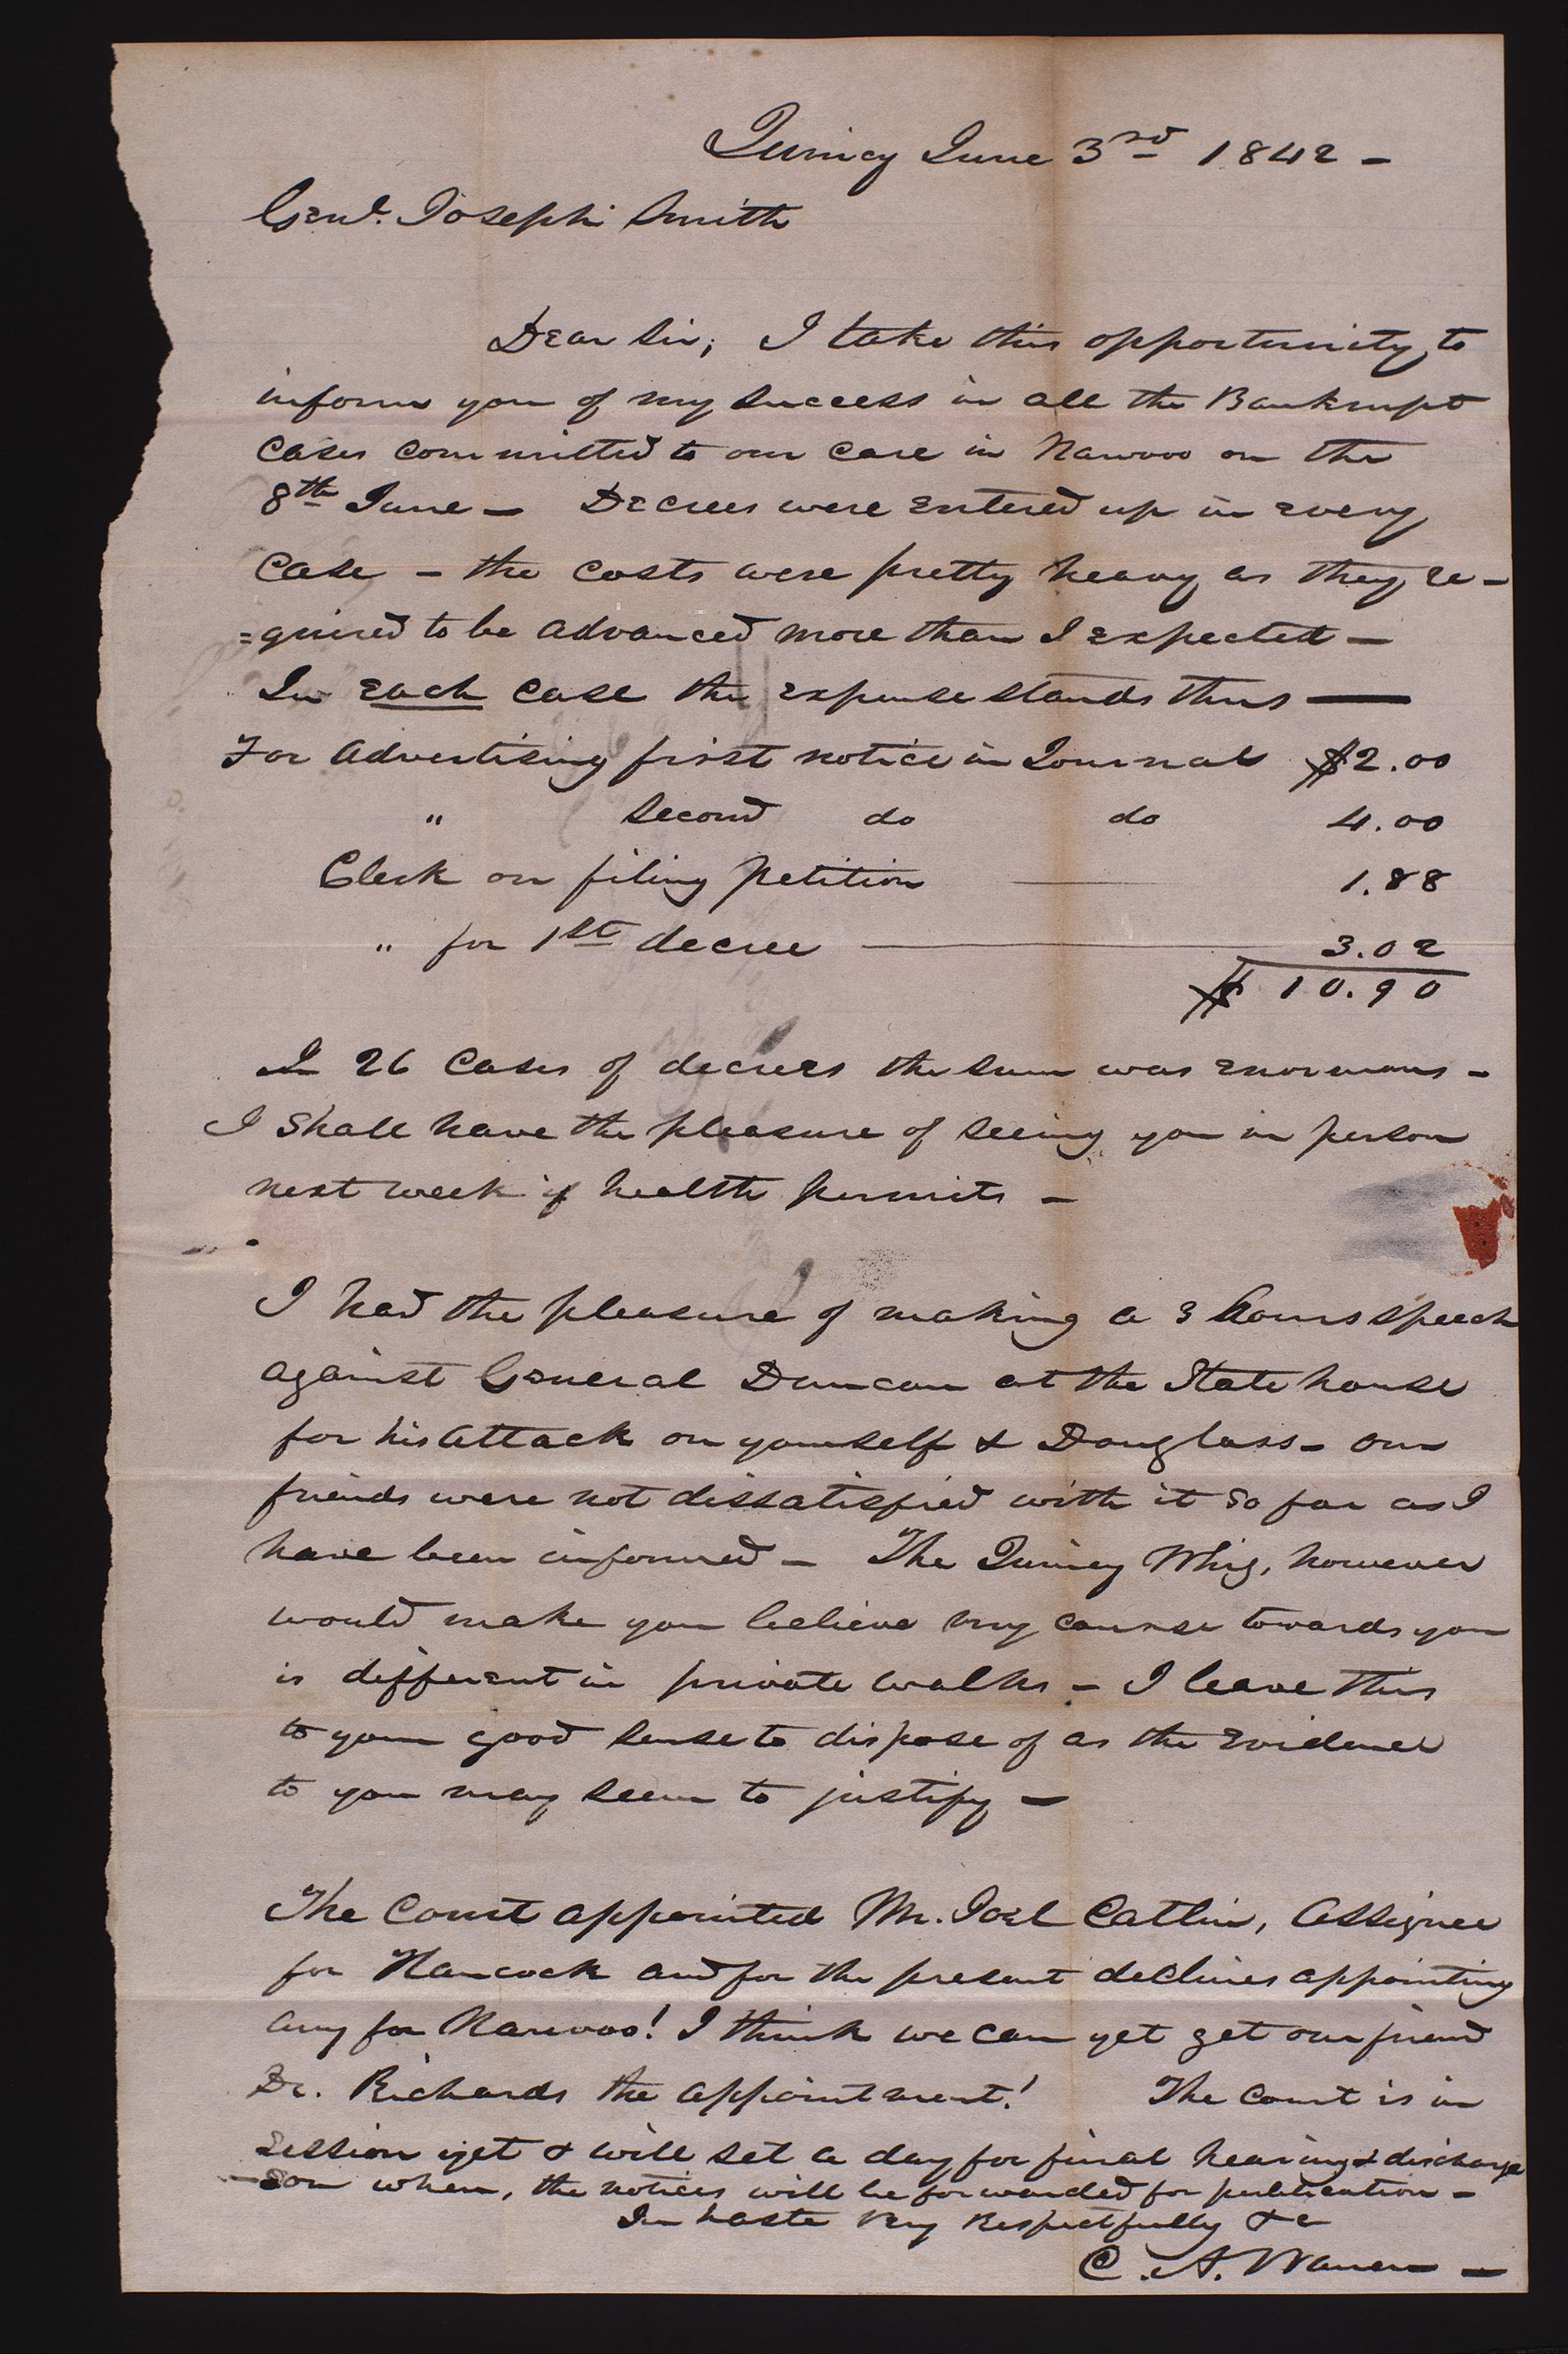 Quincy June 3rd 1842 –
Genl. Joseph Smith
Dear Sir; I take this opportunity to
inform you of my success in all the Bankrupt
Cases committed to our care in Nawvoo on the
8th June – Decrees were entered up in every
Case – the costs were pretty heavy as they re-
=quired to be advanced more than I expected –
In each case the expense stands thus —
For Advertising first notice in Journal $2.00
" Second do do 4.00
Clerk on filing petition 1.88
" for 1st decree 3.02
$ 10.90
In 26 Cases of decrees the sum was enormous –
I Shall have the pleasure of seeing you in person
next week if health permits –
I had the pleasure of making a 3 hours speech
against General Duncan at the State house
for his attack on yourself & Douglass – our
friends were not dissatisfied with it so far as I
have been informed – The Quincy Whig, however
would make you believe my course towards you
is different in private walks – I leave this
to your good sense to dispose of as the evidence
to you may seem to justify –
The Court appointed Mr. Joel Catlin, Assignee
for Hancock and for the present declines appointing
any for Nauvoo! I think we can yet get our friend
Dr. Richards the appointment! The Court is in
session yet & will set a day for final hearing & discharge
soon when, the notices will be forwarded for publication –
In haste Very Respectfully &c
C. A. Warren –